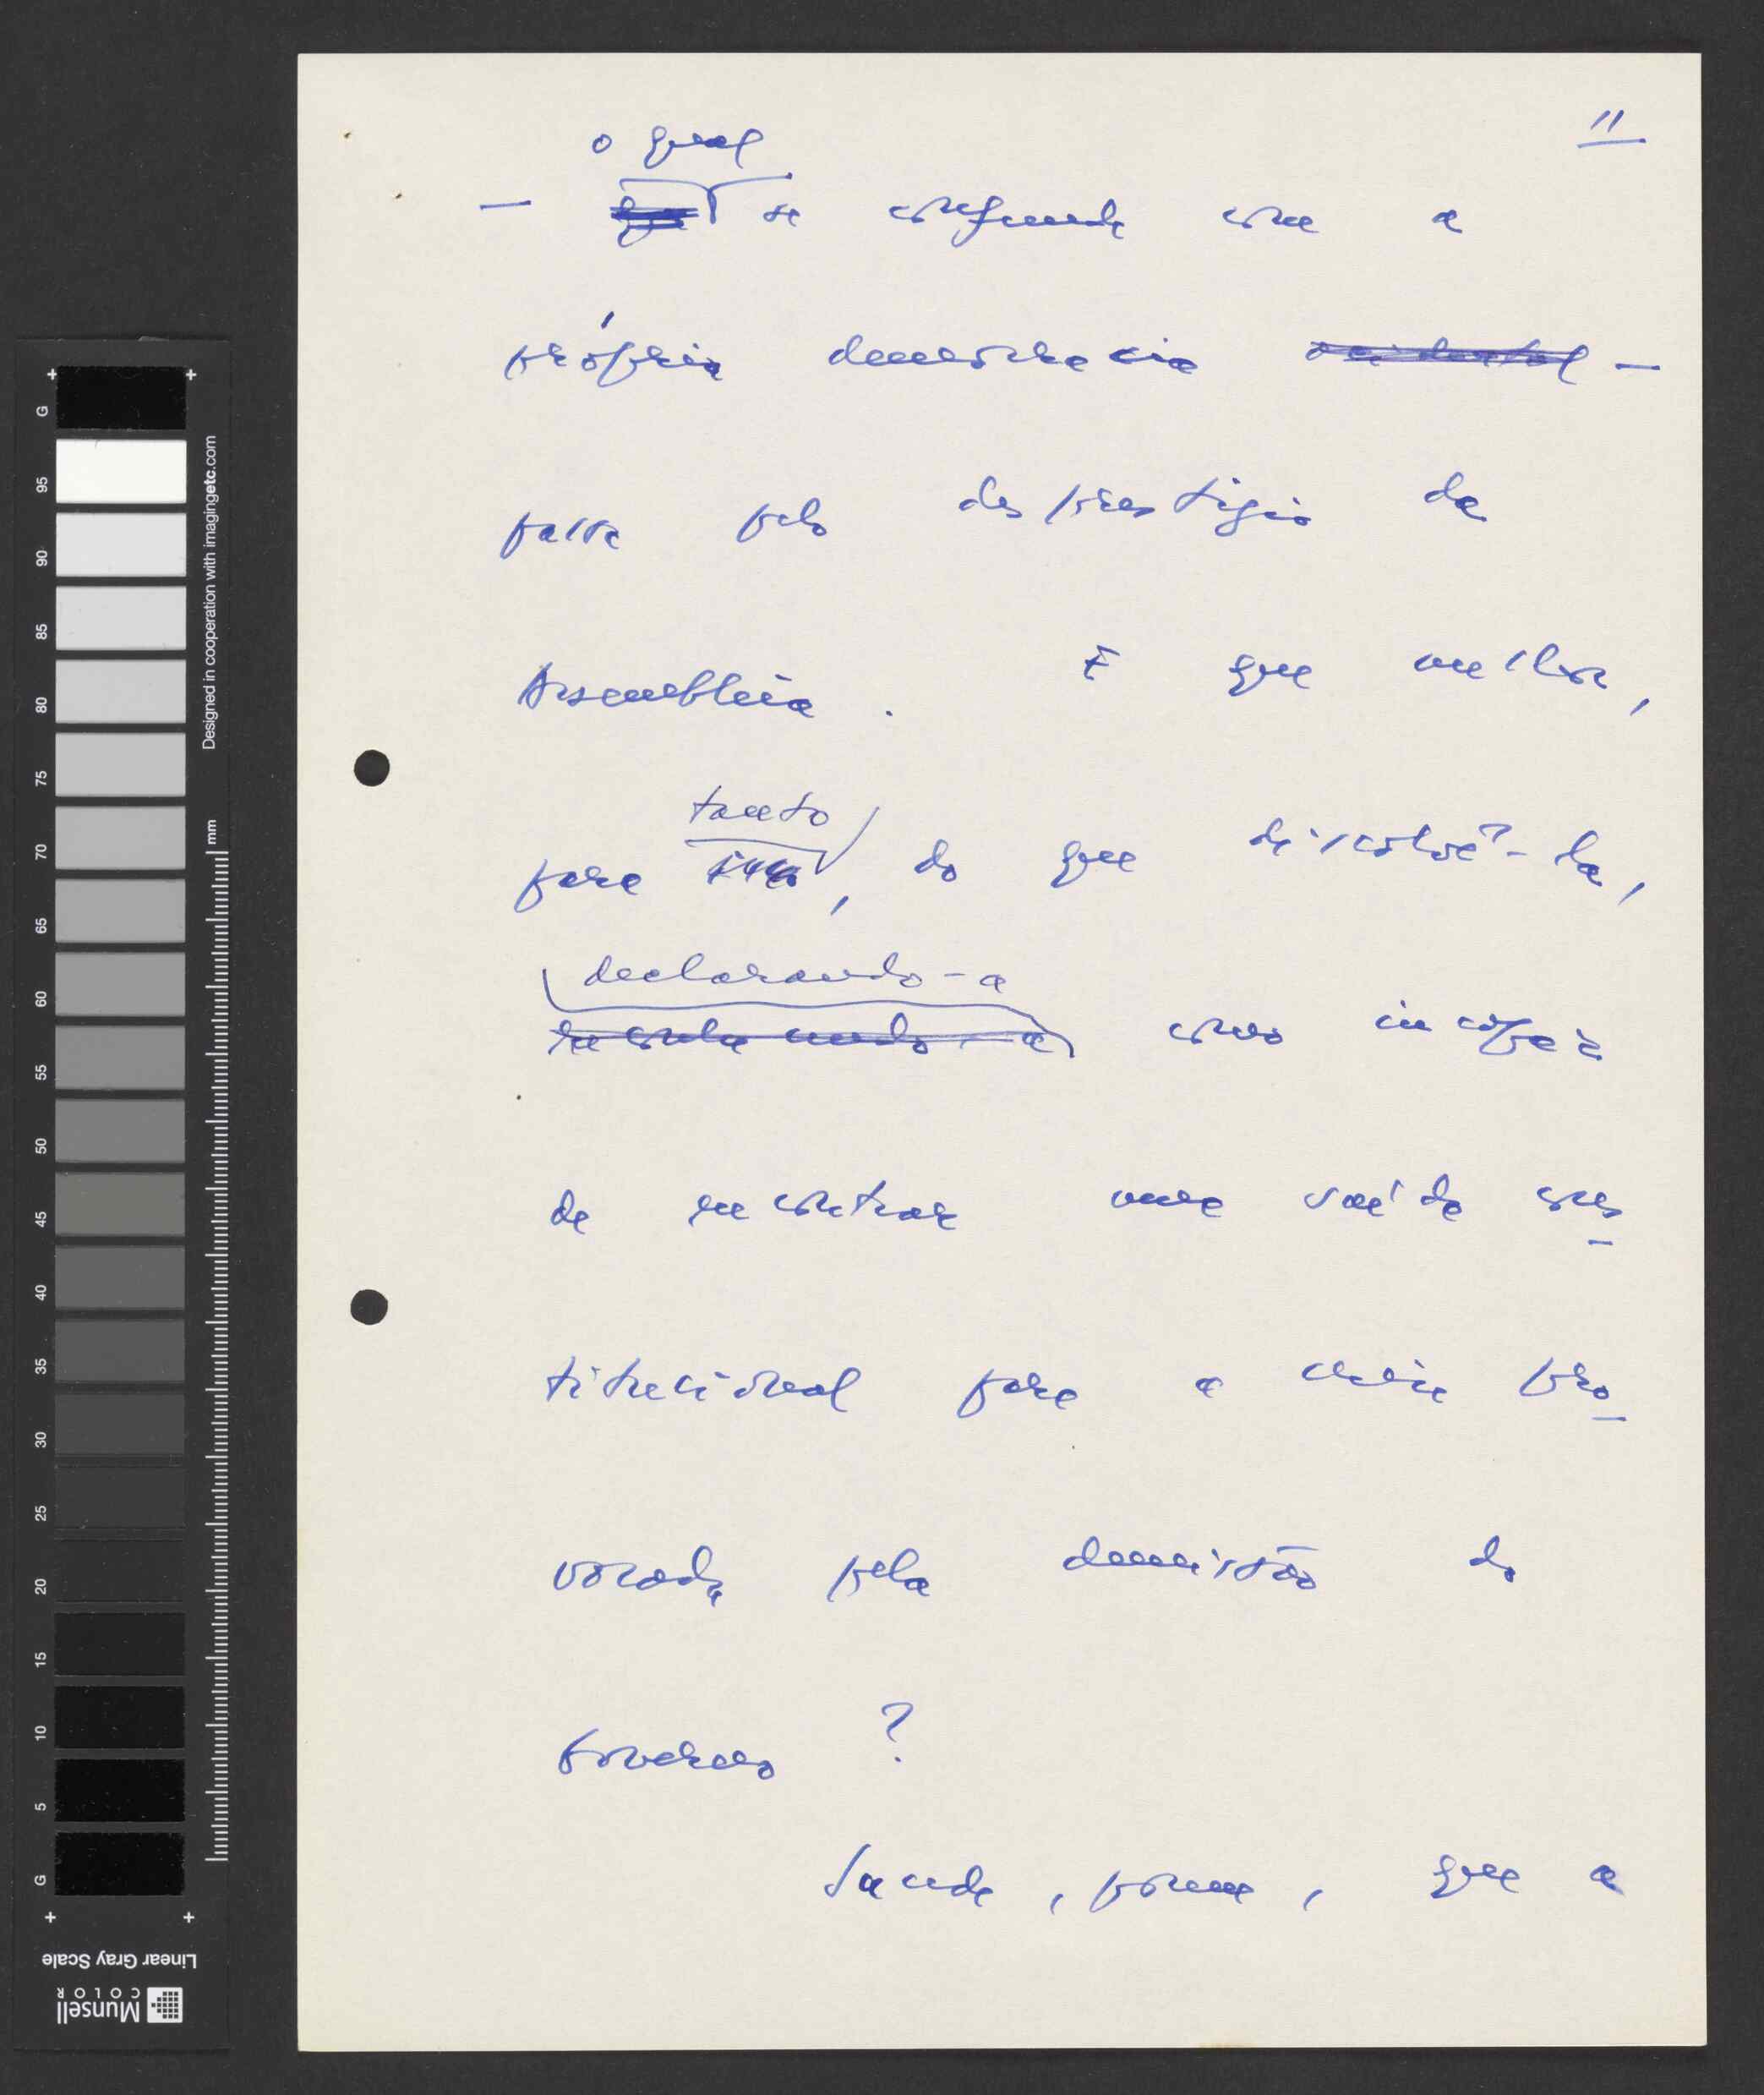 11
o qual
— que se confunde com a
própria democracia ocidental —
passa pelo desprestígio da
Assembleia. E que melhor,
tanto
para isso, do que dissolvê-la,
declarando-a
reconhecendo-a como incapaz
de encontrar uma saída cons
titucional para a crise pro
vocada pela demissão do
Governo ?
Sucede, porem, que a
G
95
90
85
80
75
70
65
60
55
50
45
40
35
30
25
20
15
10
5
G
Designed in cooperation with imagingetc.com
mm
Linear Gray Scale
Munsell
COLOR